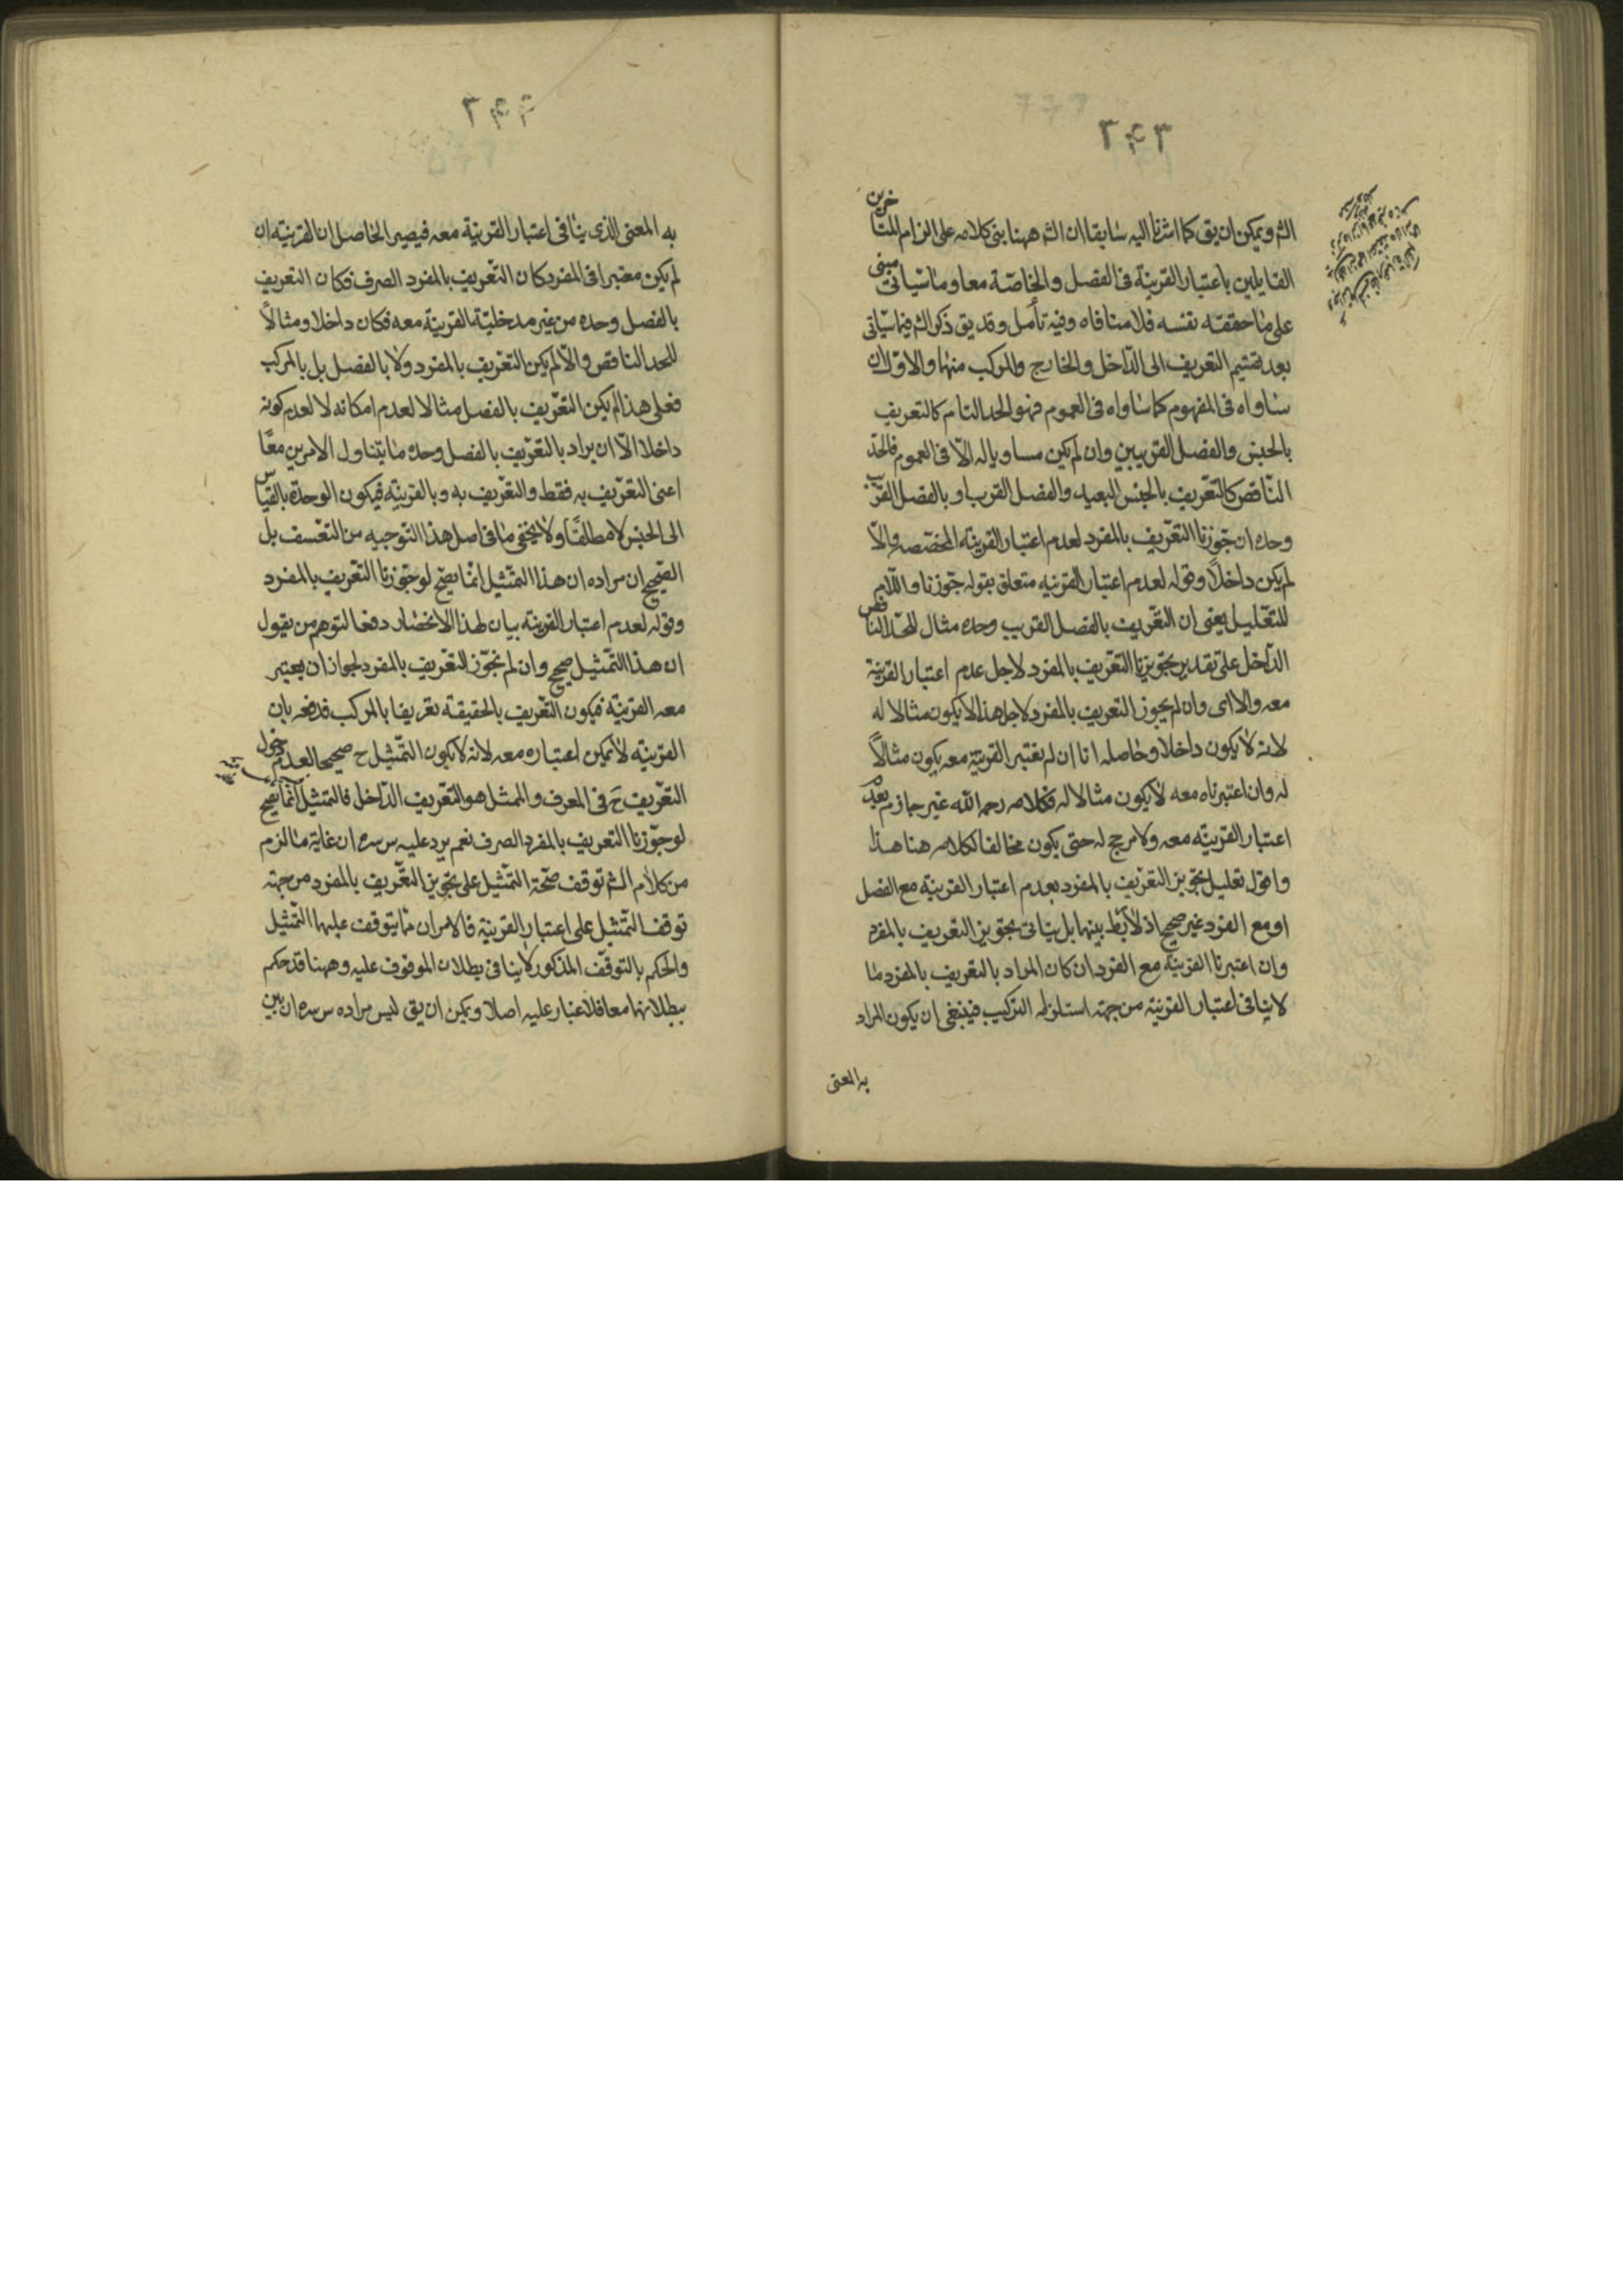 ٢٤٣
الش ويمكن ان يق كما اشرنا اليه سابقا ان الش ههنا بنى كلامه على الزام المتاخرين
القايلين باعتبار القرينة فى الفصل والخاصة معا وما سياتى مبنى
على ما حققه نفسه فلا منافاه وفيه تأمل وقد يق ذكر الش فيما سياتى
بعد تقسيم التعريف الى الداخل والخارج والمركب منهما والاول ان
ساواه فى المفهوم كما ساواه فى العموم فهو الحد التام كالتعريف
بالجنس والفصل القريبين وان لم يكن مساويا له الا فى العموم فالحد
الناقص كالتعريف بالجنس البعيد والفصل القريب او بالفصل القريب
وحده ان جوزنا التعريف بالمفرد لعدم اعتبار القرينة المخصصه والا
لم يكن داخلا وقوله لعدم اعتبار القرينه متعلق بقوله جوزنا واللام
للتعليل يعنى ان التعريف بالفصل القريب وحده مثال للحد الناقص
الداخل على تقدير تجويزنا التعريف بالمفرد لاجل عدم اعتبار القرينة
معه والا اى وان لم يجوز التعريف بالمفرد لاجل هذا لا يكون مثالا له
لانه لا يكون داخلا وحاصله انا ان لم نعتبر القرينة معه يكون مثالا
له وان اعتبرناه معه لا يكون مثالا له فكلامه رحمه الله غير جازم بعدم
اعتبار القرينة معه ولا مرجح له حتى يكون مخالفا لكلامه هنا هذا
واقول تعليل تجويز التعريف بالمفرد بعدم اعتبار القرينة مع الفصل
او مع المفرد غير صحيح اذ لا ربط بينهما بل يتاتى تجويز التعريف بالمفرد
وان اعتبرنا القرينة مع المفرد ان كان المراد بالتعريف بالمفرد ما
لا ينافى اعتبار القرينة من جهة استلزامه التركيب فينبغى ان يكون المراد
به المعنى
٢٤٤
به المعنى الذى ينافى اعتبار القرينة معه فيصير الحاصل ان القرينة ان
لم يكن معتبرا فى المفرد كان التعريف بالمفرد الصرف فكان التعريف
بالفصل وحده من غير مدخلية القرينة معه فكان داخلا ومثالا
للحد الناقص والا لم يكن التعريف بالمفرد ولا بالفصل بل بالمركب
فعلى هذا لم يكن التعريف بالفصل مثالا لعدم امكانه لا لعدم كونه
داخلا الا ان يراد بالتعريف بالفصل وحده ما يتناول الامرين معا
اعنى التعريف به فقط والتعريف به وبالقرينة فيكون الوحدة بالقياس
الى الجنس لا مطلقا ولا يخفى ما فى اصل هذا التوجيه من التعسف بل
الصحيح ان مراده ان هذا التمثيل انما يصح لو جوزنا التعريف بالمفرد
وقوله لعدم اعتبار القرينة بيان لهذا الانحصار دفعا لتوهم من يقول
ان هذا التمثيل صحيح وان لم نجوز التعريف بالمفرد لجواز ان يعتبر
معه القرينة فيكون التعريف بالحقيقة تعريفا بالمركب فدفعه بان
القرينه لا يمكن اعتباره معه لانه لا يكون التمثيل ح صحيحا لعدم دخول
التعريف ح فى المعرف والممثل هو التعريف الداخل فالتمثيل انما يصح
لو جوزنا التعريف بالمفرد الصرف نعم يرد عليه س سره ان غاية ما لزم
من كلام الش توقف صحة التمثيل على تجويز التعريف بالمفرد من جهة
توقف التمثيل على اعتبار القرينة فالامران مما يتوقف عليهما التمثيل
والحكم بالتوقف المذكور لا ينافى بطلان الموقوف عليه وههنا قد حكم
ببطلانهما معا فلا غبار عليه اصلا ويمكن ان يق ليس مراده س سره ان بين